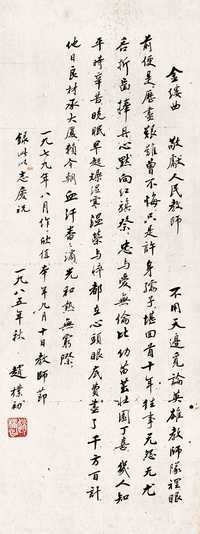 金缕曲　敬献人民教师
不用天边觅论英雄教师队裡眼
前便是历尽艰难曾不悔只是许身孺子堪回首十年往事无怨无尤
吞折齒捧丹心默向红旗祭忠与爱无伦比幼苗茁壮园丁喜几人知
平时辛苦晚眠早起燥湿寒温荣与悴都在心头眼底费尽了千方百计
他日良材承大厦赖今朝血汗番番滴光和热无穷际
一九七九年八月作欣值本年九月十日教师节
录此以志庆祝
一九八五年秋　赵樸初